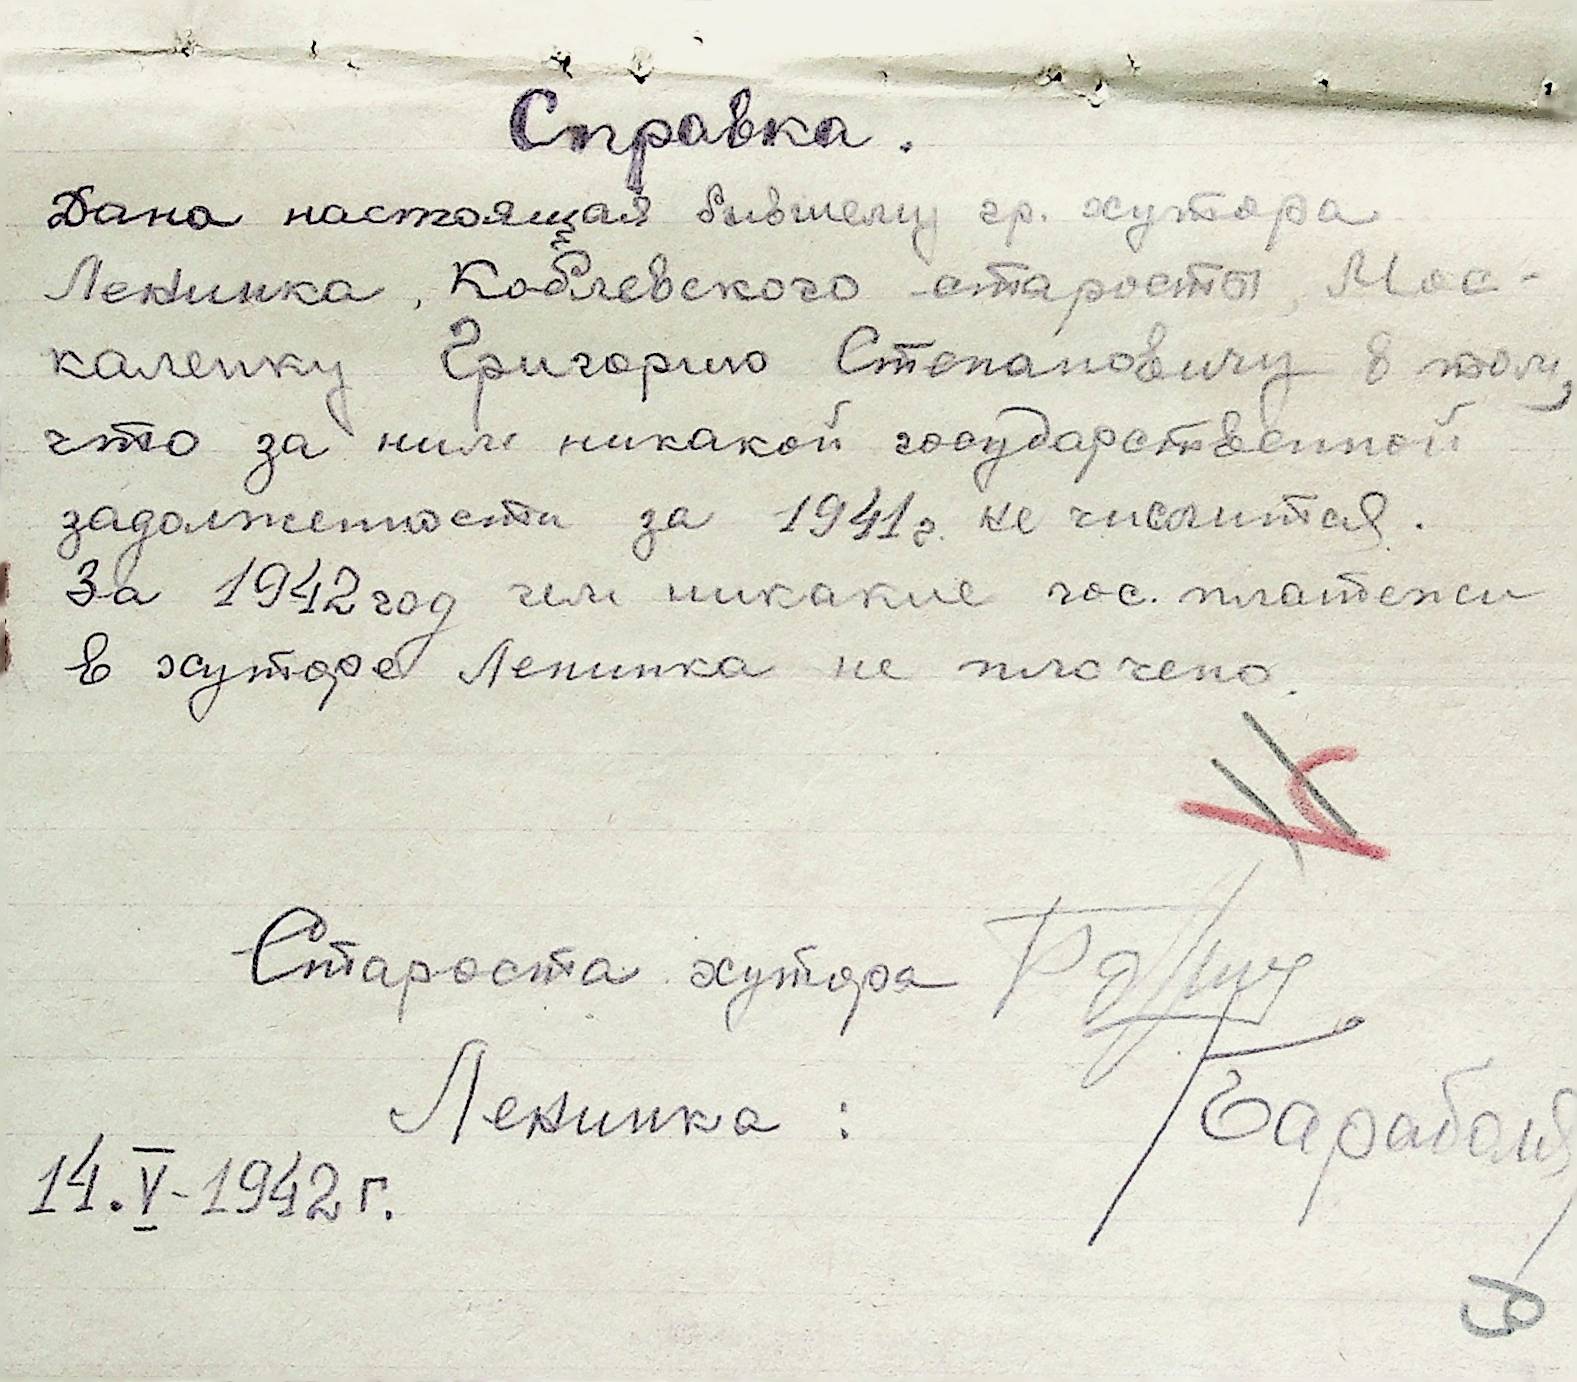 Справка.
Дана настоящая бывшему гр. хутора
Ленинка, Коблевского старосты, Мос-
каленку Григорию Степановичу в том,
что за ним никакой государственной
задолженности за 1941 г. не числится.
За 1942 год чем никакие гос. платежи
в хуторе Ленинка не плочено.
Староста хутора
Ленинка:
14.V-1942 г.